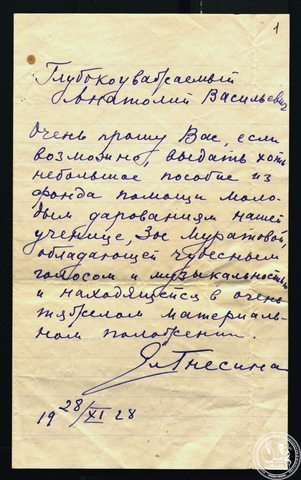 1
Глубокоуважаемый
Анатолий Васильевич
Очень прошу Вас, если
возможно, выдать хоть
небольшое пособие из
фонда помощи моло-
дым дарованиям нашей
ученице, Зое Муратовой,
обладающей чудесным
голосом и музыкальностью
и находящейся в очень
тяжелом материаль-
ном положении.
Ел Гнесина
19 28/XI 28